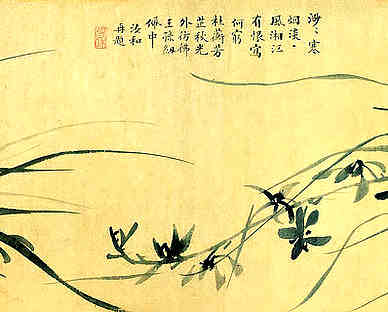 渺〻寒
烟淡〻
風湘江
有恨寫
何窮
杜蘅芳
芷秋光
外彷彿
王孫紉
佩中
和
再題